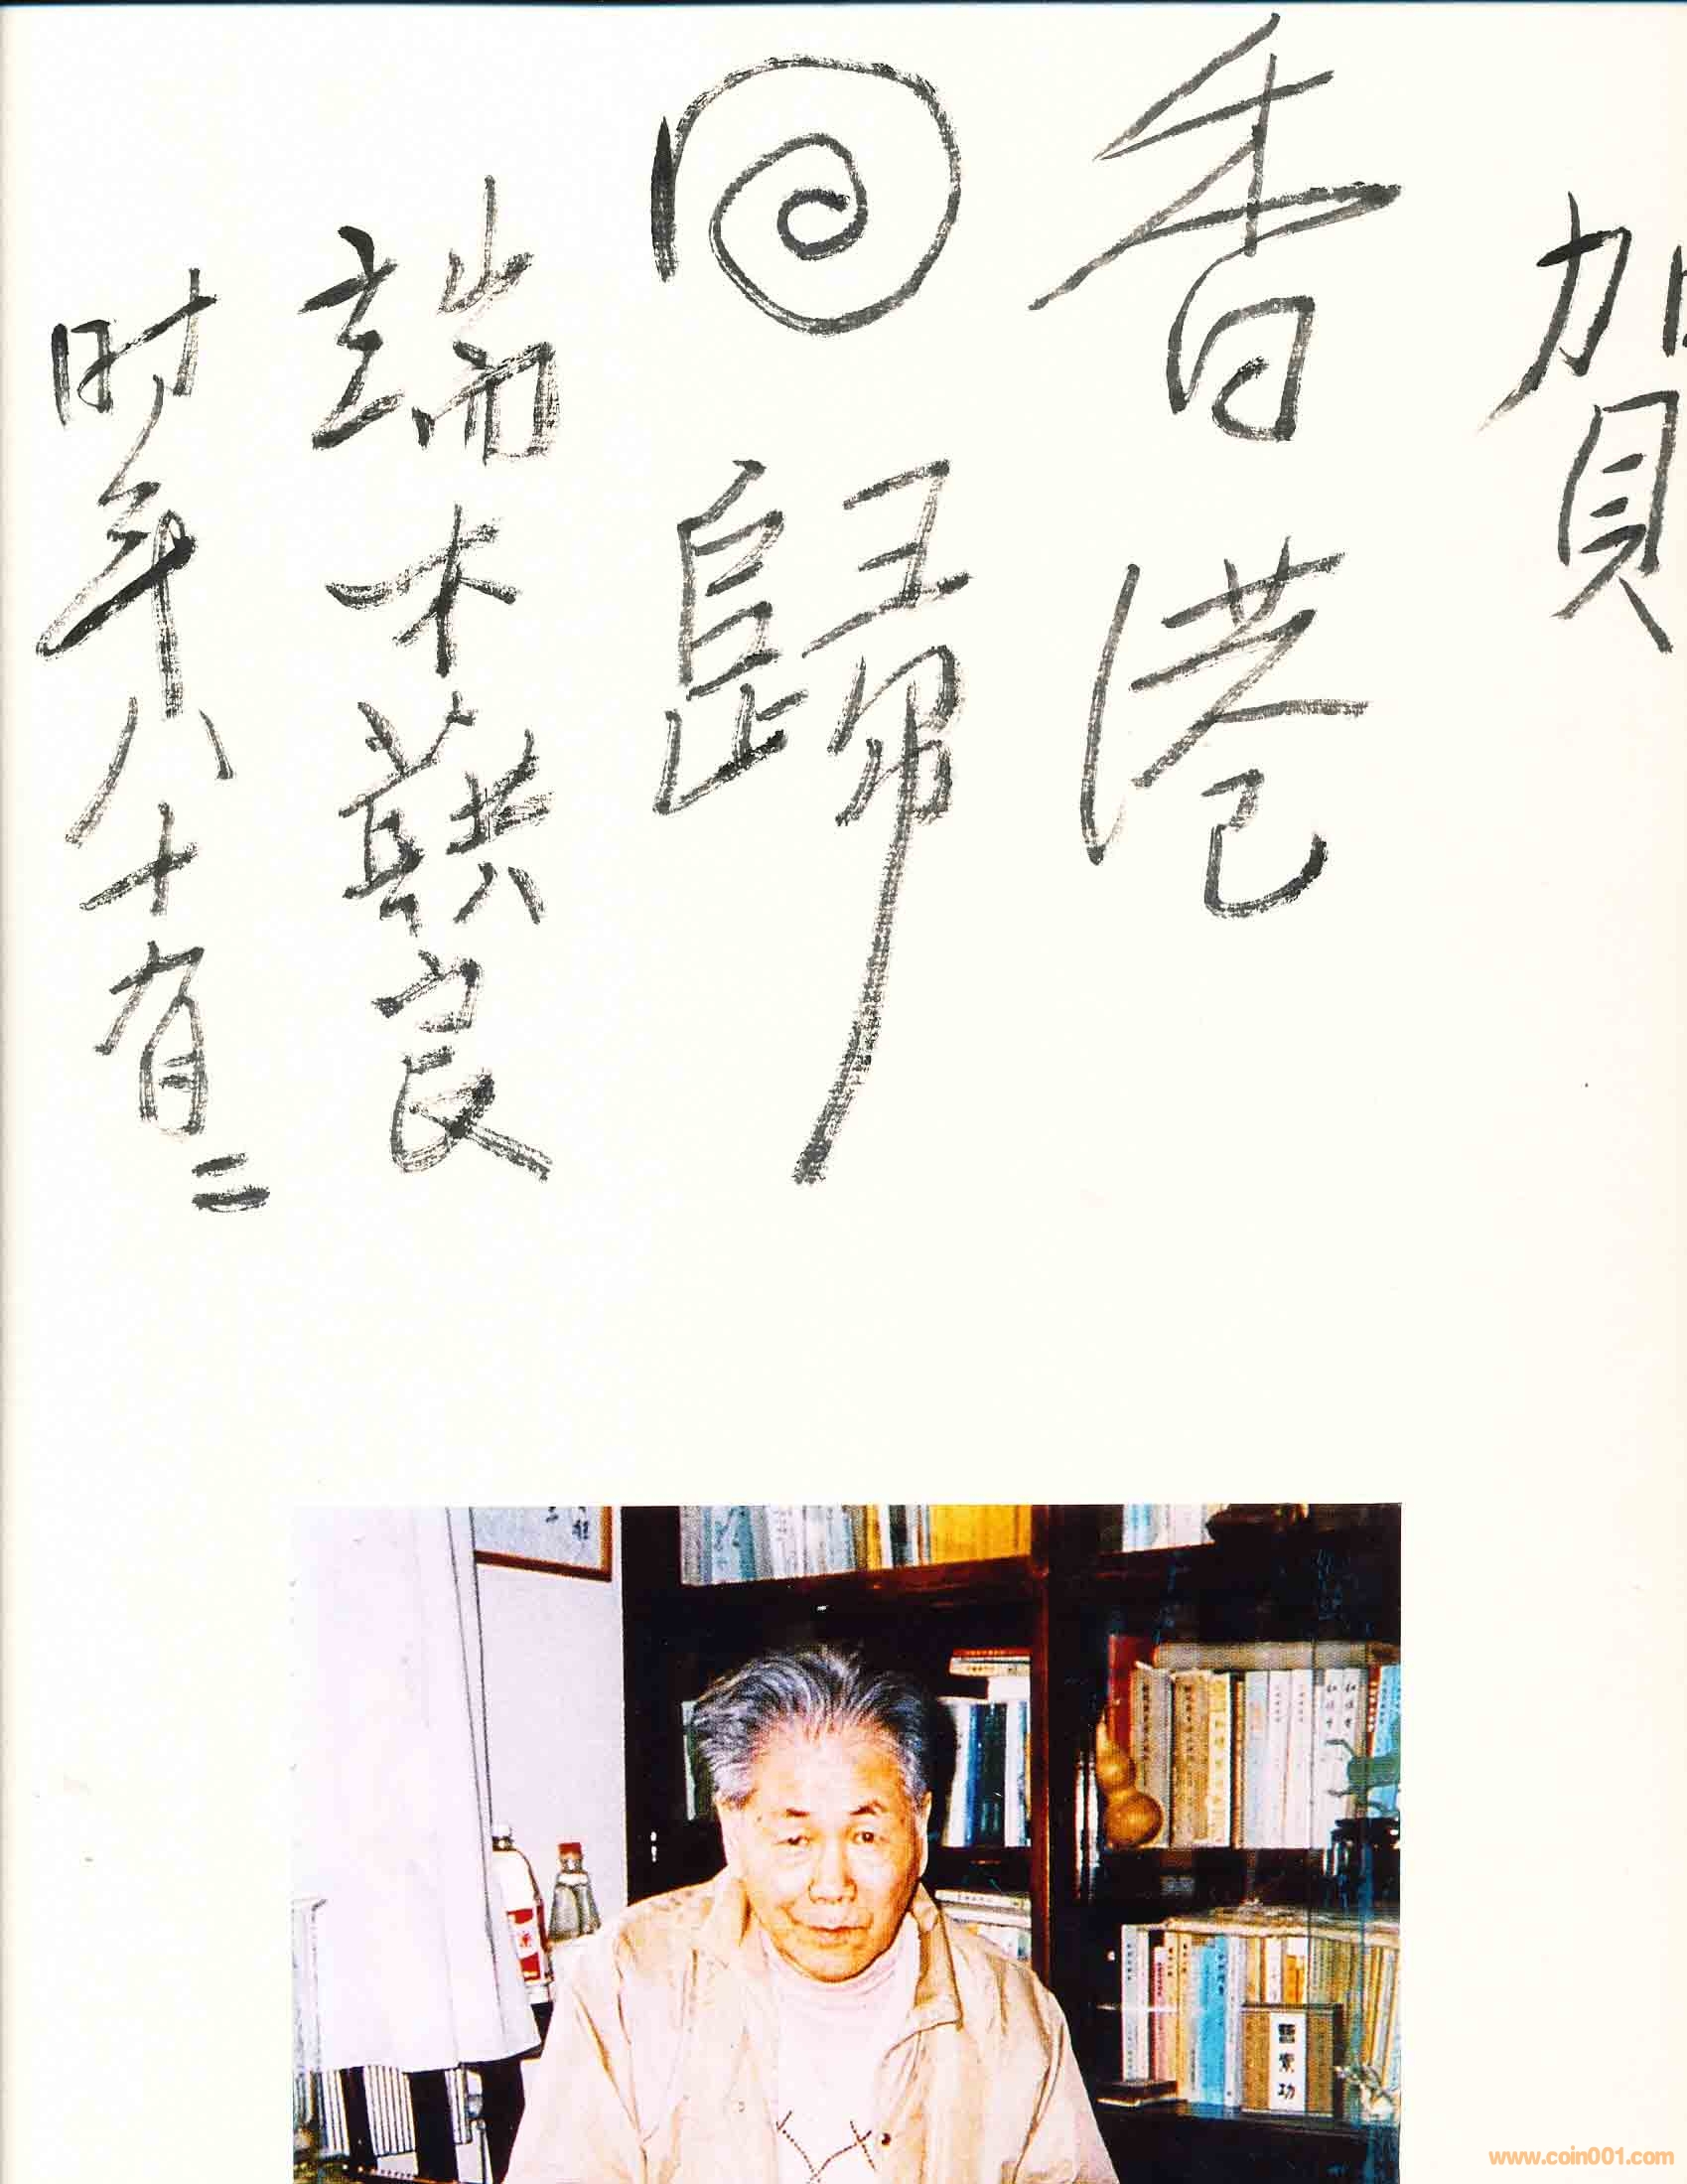 賀
香港
回歸
端木蕻良
时年八十有二
曹素功
www.coin001.com